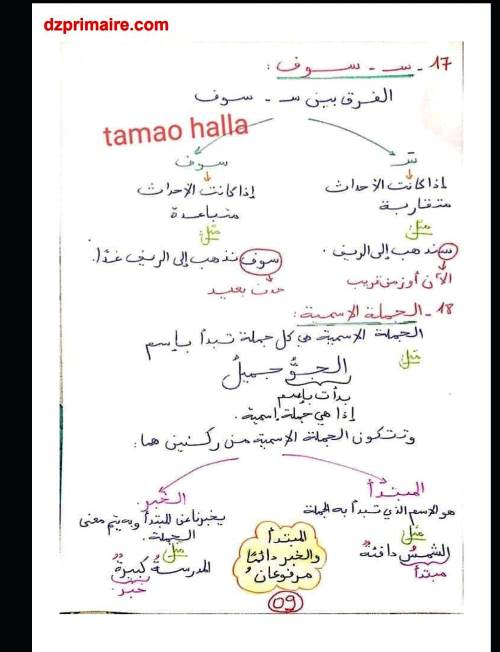 dzprimaire.com
17 - س - سوف :
الفرق بين س - سوف
tamao halla
سـ
إذا كانت الأحداث
متقاربة
مثل:
سنذهب إلى الريف.
الآن أو زمن قريب
سوف
إذا كانت الأحداث
متباعدة
مثل:
سوف نذهب إلى الريف غدًا.
حدث بعيد
18 - الجملة الاسمية :
الجملة الاسمية هي كل جملة تبدأ بإسم
مثل
الجوُّ جميلُ
بدأت بإسم
إذا هي جملة إسمية.
وتتكون الجملة الاسمية من ركنين هما:
المبتدأ
هو الاسم الذي تبدأ به الجملة
مثل
الشمسُ دافئةٌ
مبتدأ
الخبر.
يخبرنا عن المبتدأ وبه يتم معنى
الجملة.
مثل
المدرسةُ كبيرةٌ
خبر
المبتدأ
والخبر دائمًا
مرفوعان
09